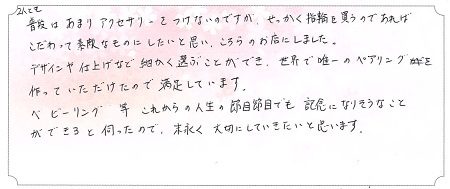 2人とも
普段はあまりアクセサリーをつけないのですが、せっかく指輪を買うのであれば
こだわって素敵なものにしたいと思い、こちらのお店にしました。
デザインや仕上げなど細かく選ぶことができ、世界で唯一のペアリングを
作っていただけたので満足しています。
ベビーリング等これからの人生の節目節目でも記念になりそうなこと
ができると伺ったので、末永く大切にしていきたいと思います。